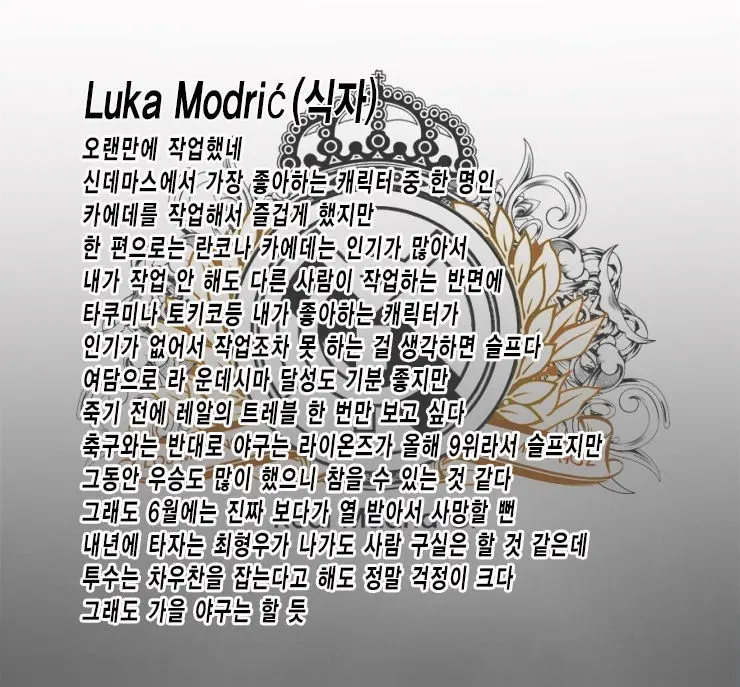 Luka Modrić(식자)
오랜만에 작업했네
신데마스에서 가장 좋아하는 캐릭터 중 한 명인
카에데를 작업해서 즐겁게 했지만
한 편으로는 란코나 카에데는 인기가 많아서
내가 작업 안 해도 다른 사람이 작업하는 반면에
타쿠미나 토키코등 내가 좋아하는 캐릭터가
인기가 없어서 작업조차 못 하는 걸 생각하면 슬프다
여담으로 라 운데시마 달성도 기분 좋지만
죽기 전에 레알의 트레블 한 번만 보고 싶다
축구와는 반대로 야구는 라이온즈가 올해 9위라서 슬프지만
그동안 우승도 많이 했으니 참을 수 있는 것 같다
그래도 6월에는 진짜 보다가 열 받아서 사망할 뻔
내년에 타자는 최형우가 나가도 사람 구실은 할 것 같은데
투수는 차우찬을 잡는다고 해도 정말 걱정이 크다
그래도 가을 야구는 할 듯